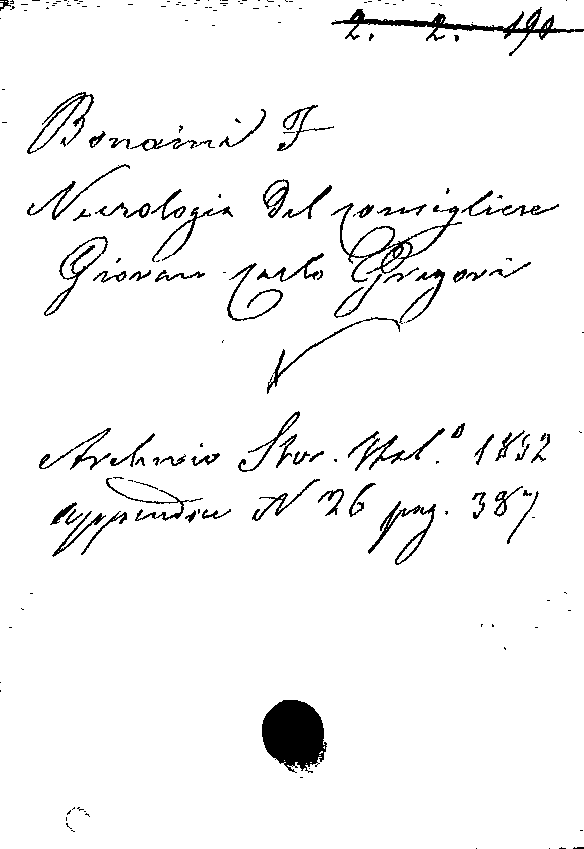 2. 2. 190
Bonaini F
Necrologia del consigliere
Giovan Carlo Gregori
Archivio Stor. Ital.º 1852
appendice N 26 pag. 387